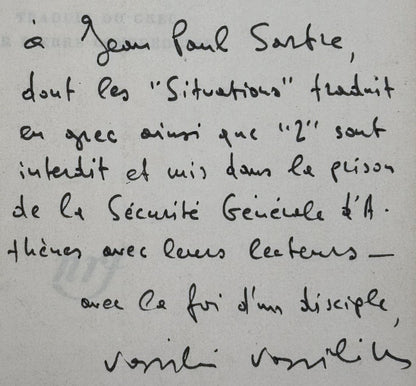 TRADUIT DU GREC
à Jean Paul Sartre,
dont les "Situations" traduit
en grec ainsi que "Z" sont
interdit et mis dans la prison
de la Sécurité Générale d'A-
thènes avec leurs lecteurs —
nrf
avec la foi d'un disciple,
Vassilis Vassilikos